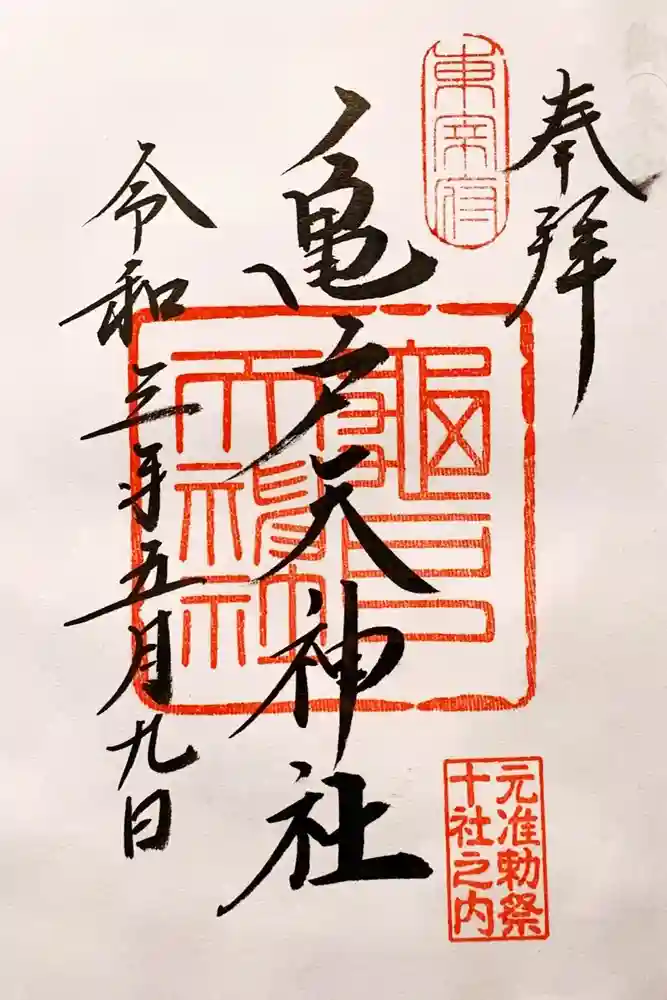 奉拝
東宰府
亀戸天神社
令和三年五月九日
元准勅祭
十社之内